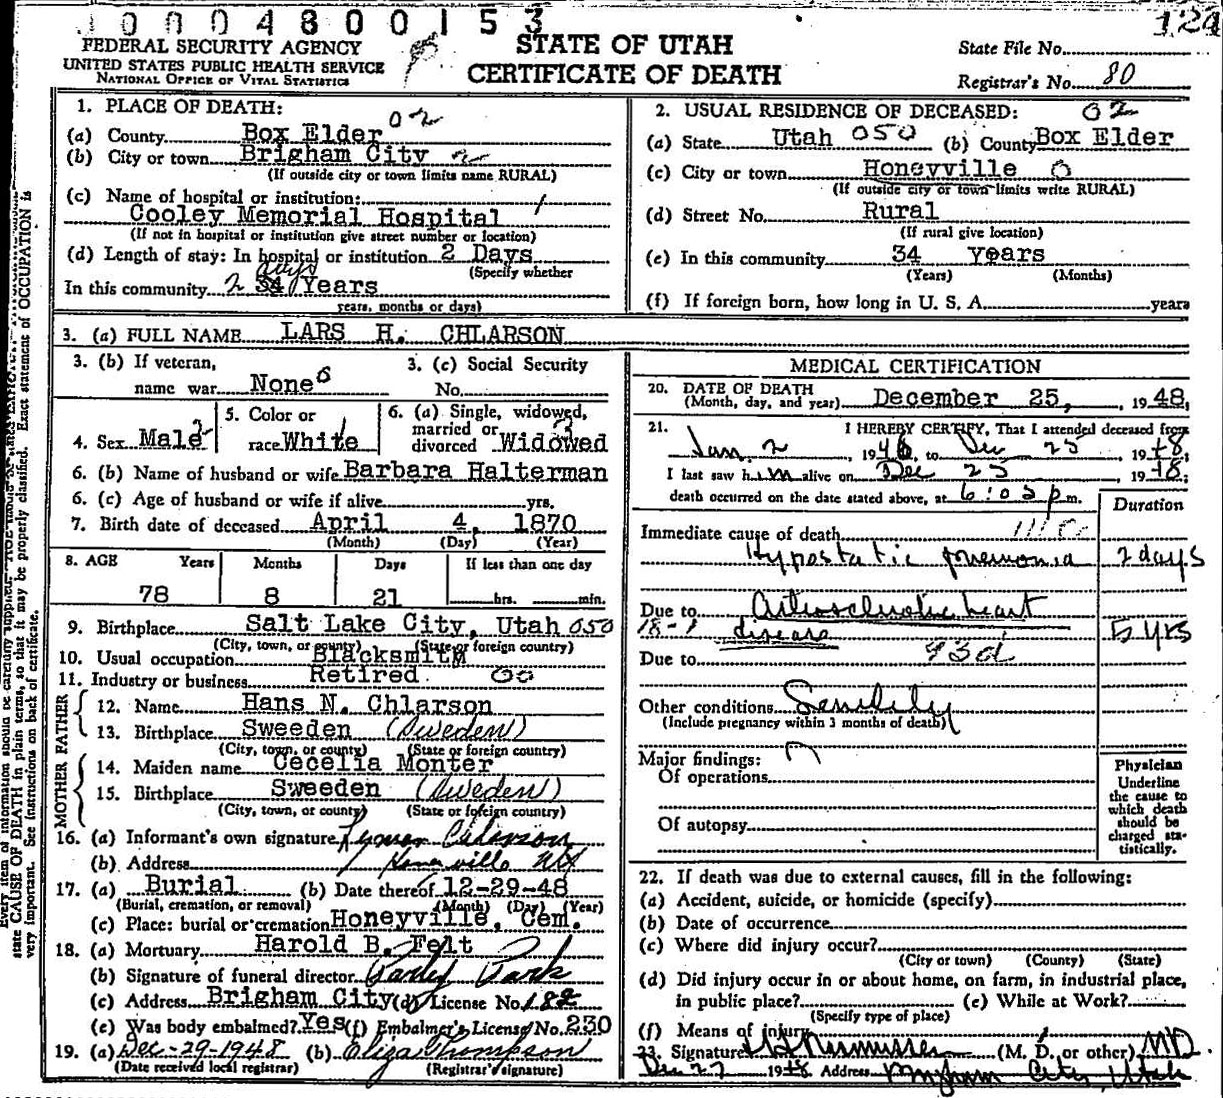 10004800153
124
FEDERAL SECURITY AGENCY
UNITED STATES PUBLIC HEALTH SERVICE
NATIONAL OFFICE OF VITAL STATISTICS
STATE OF UTAH
CERTIFICATE OF DEATH
State File No.
Registrar's No. 80
Every item of information should be carefully supplied.
state CAUSE OF DEATH in plain terms, so that it may be properly classified. Exact statement of OCCUPATION is
very important. See instructions on back of certificate.
1. PLACE OF DEATH: 02
(a) County Box Elder
(b) City or town Brigham City 2
(If outside city or town limits name RURAL)
(c) Name of hospital or institution: 1
Cooley Memorial Hospital
(If not in hospital or institution give street number or location)
(d) Length of stay: In hospital or institution 2 Days
(Specify whether
days
In this community 2 34 Years
years, months or days)
2. USUAL RESIDENCE OF DECEASED: 02
(a) State Utah 050 (b) County Box Elder
(c) City or town Honeyville 0
(If outside city or town limits write RURAL)
(d) Street No. Rural
(If rural give location)
(e) In this community 34 Years
(Years) (Months)
(f) If foreign born, how long in U. S. A. years
3. (a) FULL NAME LARS H. CHLARSON
3. (b) If veteran,
name war None 0
3. (c) Social Security
No.
4. Sex Male 2
5. Color or
race White 1
6. (a) Single, widowed,
married or
divorced Widowed 3
6. (b) Name of husband or wife Barbara Halterman
6. (c) Age of husband or wife if alive yrs.
7. Birth date of deceased April 4, 1870
(Month) (Day) (Year)
8. AGE Years Months Days If less than one day
78 8 21 hrs. min.
9. Birthplace Salt Lake City, Utah 050
(City, town, or county) (State or foreign country)
10. Usual occupation Blacksmith
11. Industry or business Retired 00
FATHER
12. Name Hans N. Chlarson
13. Birthplace Sweeden (Sweden)
(City, town, or county) (State or foreign country)
MOTHER
14. Maiden name Cecelia Monter
15. Birthplace Sweeden (Sweden)
(City, town, or county) (State or foreign country)
16. (a) Informant's own signature Lyman Chlarson
(b) Address Honeyville Ut
17. (a) Burial (b) Date thereof 12-29-48
(Burial, cremation, or removal) (Month) (Day) (Year)
(c) Place: burial or cremation Honeyville, Cem.
18. (a) Mortuary Harold B. Felt
(b) Signature of funeral director Park
(c) Address Brigham City (d) License No. 182
(e) Was body embalmed? Yes (f) Embalmer's License No. 230
19. (a) Dec-29-1948 (b) Eliza Thompson
(Date received local registrar) (Registrar's signature)
MEDICAL CERTIFICATION
20. DATE OF DEATH
(Month, day, and year) December 25, 1948,
21. I HEREBY CERTIFY, That I attended deceased from
Jan. 2, 1946, to Dec 25 1948;
I last saw him alive on Dec 25 1948;
death occurred on the date stated above, at 6:05 p m.
Duration
Immediate cause of death
Hypostatic pneumonia 2 days
Due to Arteriosclerotic heart
18-1 disease 5 yrs
Due to 93d
Other conditions Senility
(Include pregnancy within 3 months of death)
Major findings:
Of operations
Of autopsy
Physician
Underline
the cause to
which death
should be
charged sta-
tistically.
22. If death was due to external causes, fill in the following:
(a) Accident, suicide, or homicide (specify)
(b) Date of occurrence
(c) Where did injury occur?
(City or town) (County) (State)
(d) Did injury occur in or about home, on farm, in industrial place,
in public place? (e) While at Work?
(Specify type of place)
(f) Means of injury
23. Signature Rasmussen (M. D. or other) MD
Dec 27 1948 Address Brigham City, Utah